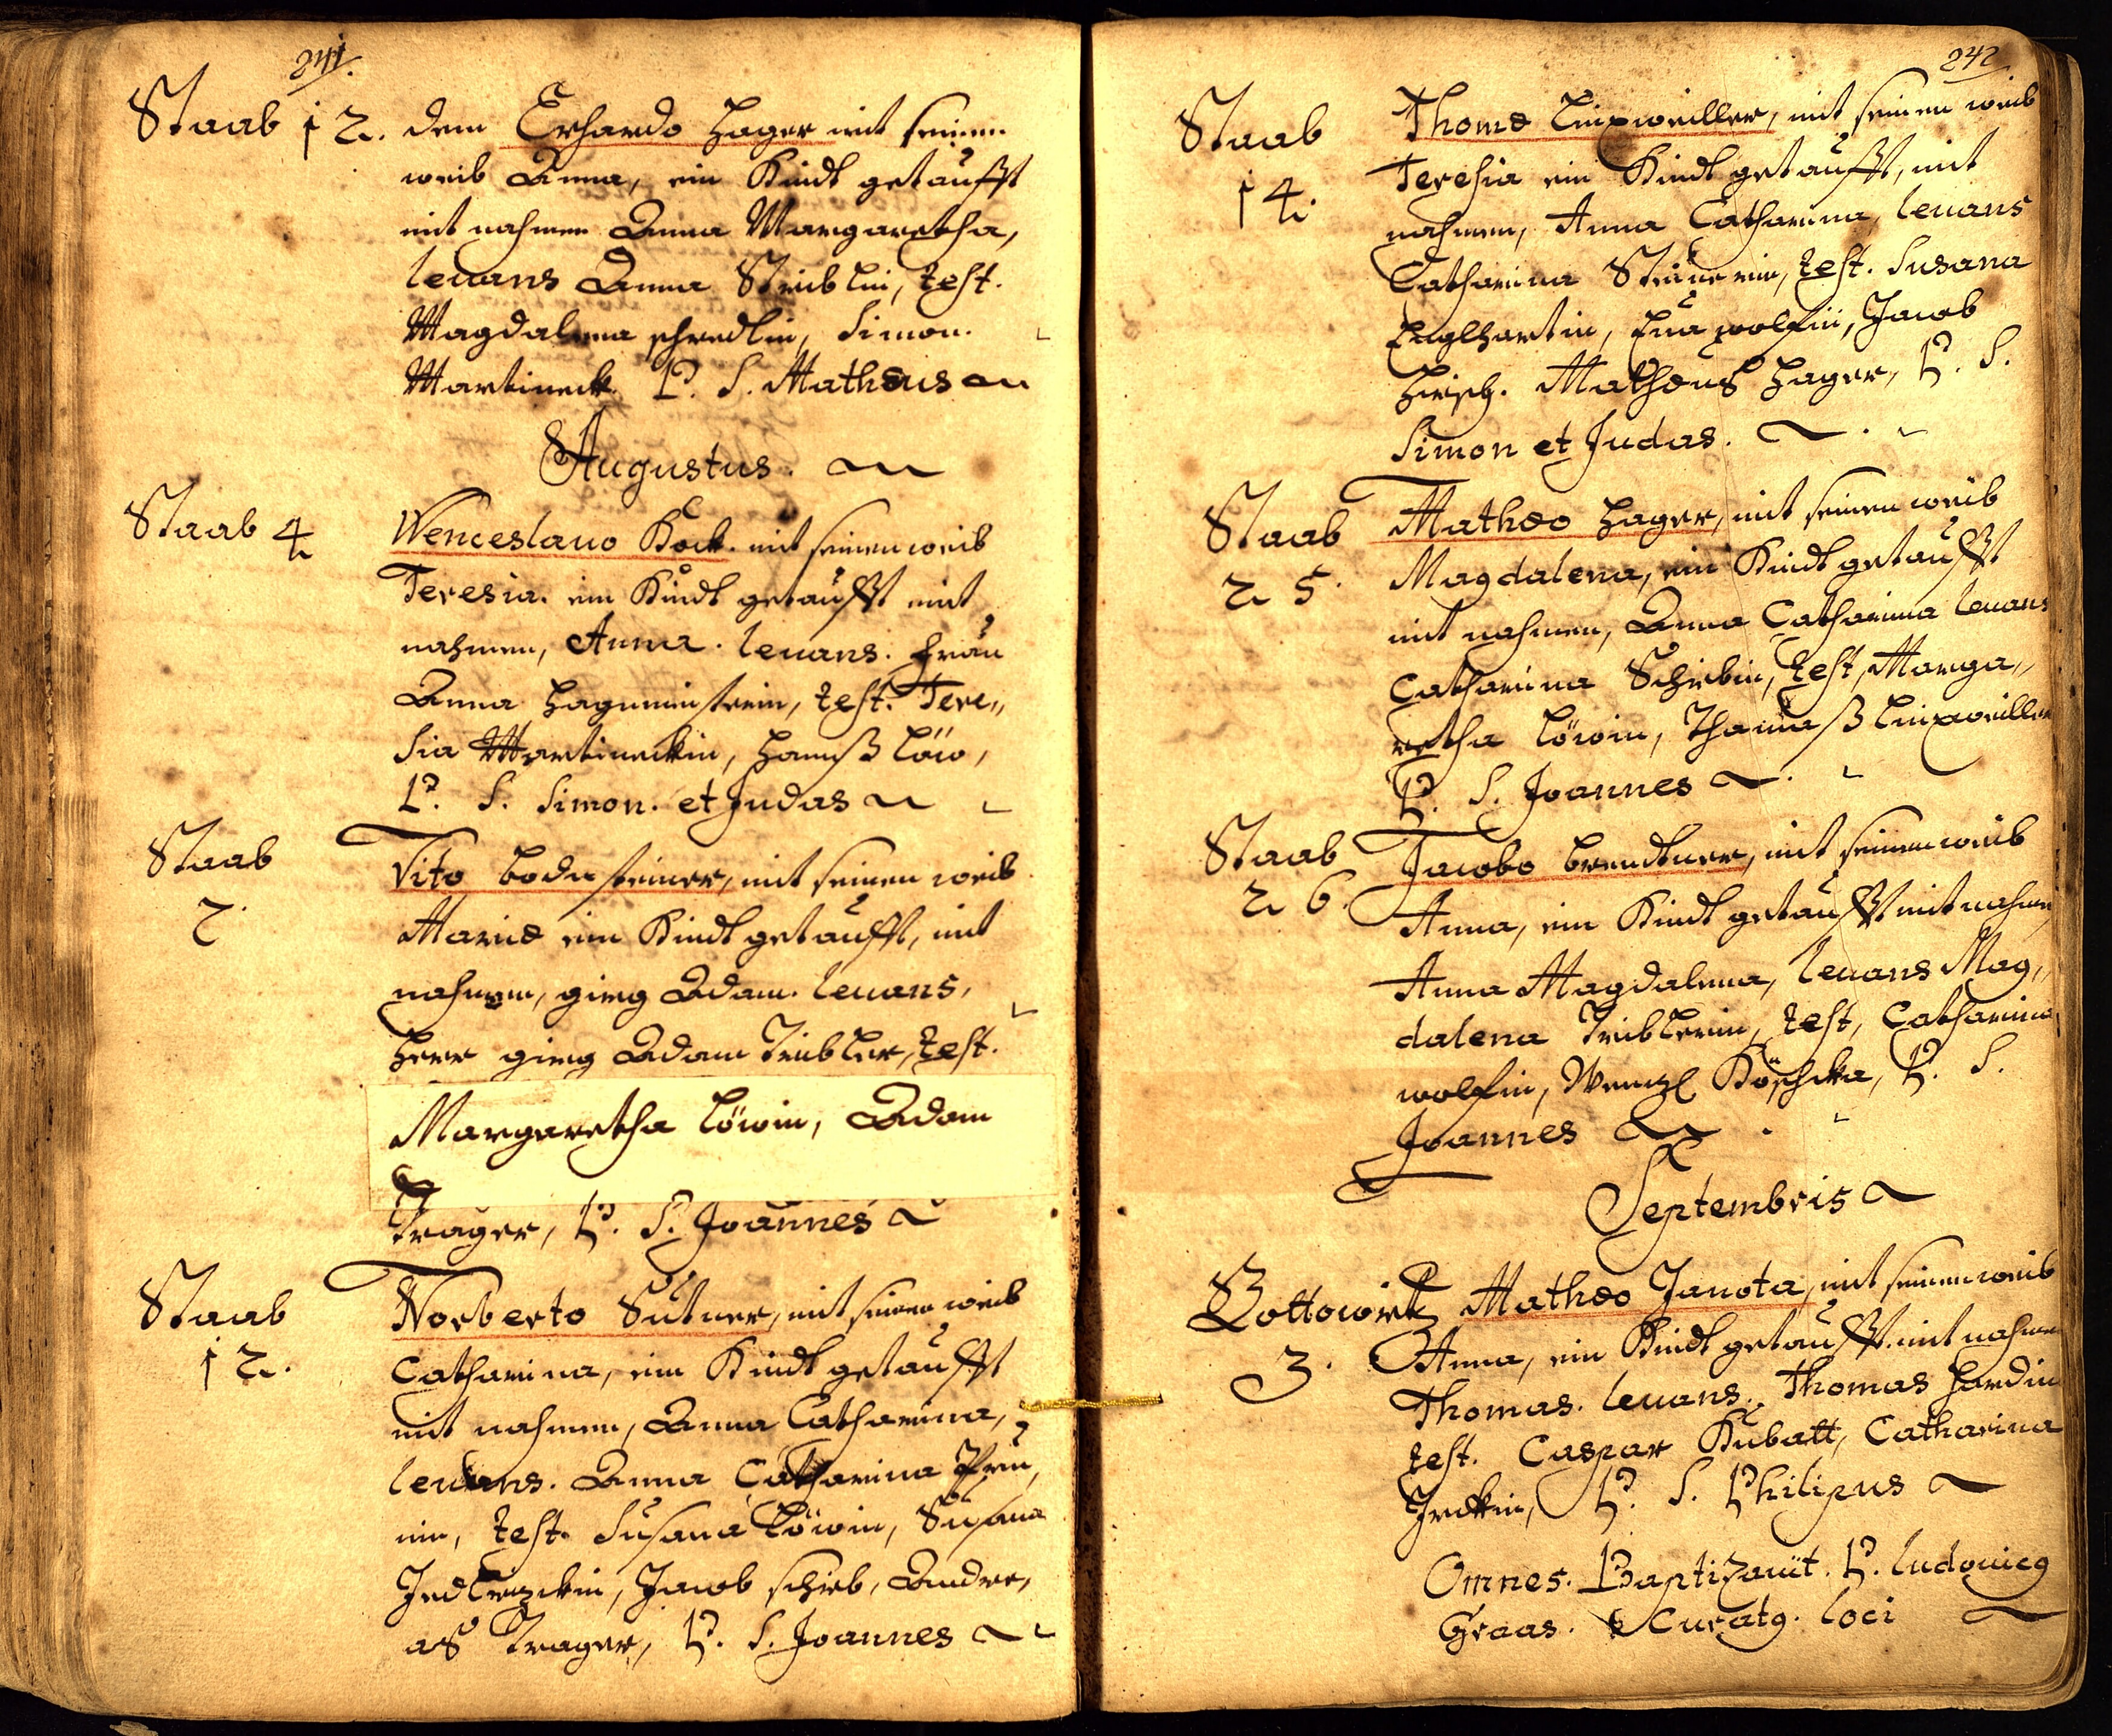 241.
Staab 12. dem Erhardo Hager mit seinem
weib Anna, ein Kindt getaufft
mit nahmen Anna Margaretha,
levans Anna Steiblin, test.
Magdalena schredlin, Simon
Martineck. P. S. Mathæus
Augustus.
Staab 4
Wenceslauo Kock. mit seinen weib
Teresia. ein Kindt getaufft mit
nahmen, Anna. levans. Frau
Anna Hagmeinstrein, test. Tere„
sia Martineckin, Hanß Löw,
P. S. Simon. et Judas
Staab
2.
Vito bodensteiner, mit seinen weib
Mariæ ein Kindt getaufft, mit
nahmen, girg Adam. levans,
Herr girg Adam Teibler, test.
Margaretha Löwin, Adam
Trager, P. S. Joannes
Staab
12.
Norberto Sutner, mit seinen weib
Catharina, ein Kindt getaufft
mit nahmen, Anna Catharina,
levans. Anna Catharina
nin, test. Susana Löwin, Susana
Jacob schieb, Andre,
as Trager, P. S. Joannes
242
Staab
14.
Thomæ Linxweiller, mit seinen weib
Teresia ein Kindt getaufft, mit
nahmen, Anna Catharina, levans
Catharina test. Susana
Englhartin, Eua wolfin, Jacob
Hirsch. Mathæus Hager, P. S.
Simon et Judas.
Staab
25.
Mathæo Hager, mit seinen weib
Magdalena, ein Kindt getaufft
mit nahmen, Anna Catharina levans
Catharina Schiebin, test, Marga„
retha Löwin, Thamaß Linxweiller
P. S. Joannes
Staab
26.
Jacobo brendtner, mit seinen weib
Anna, ein Kindt getaufft mit nahmen
Anna Magdalena, levans Mag„
dalena Teiblerin, test, Catharina
wolfin, Wenzl Köschka, P. S.
Joannes
Septembris
Gottowitz
3.
Mathæo Janota, mit seinen weib
Anna, ein Kindt getaufft. mit nahmen
Thomas. levans. Thomas Hardin
test. Caspar Kubatt, Catharina
Jrckin, P. S. Philipus
Omnes. Baptizauit. P. ludouicg
Graas. Curatg. loci